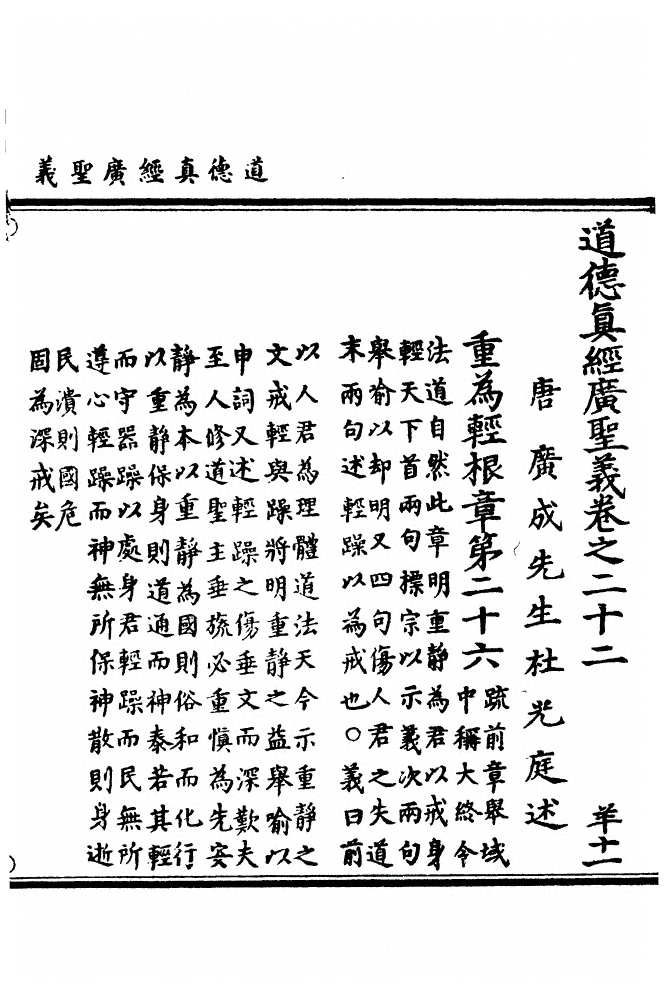 道德真經廣聖義
道德眞經廣聖義卷之二十二 羊十一
唐廣成先生杜光庭述
重為輕根章第二十六 疏前章舉域
中稱大終令
法道自然此章明重靜為君以戒身
輕天下首兩句標宗以示義次兩句
舉喻以却明又四句傷人君之失道
末兩句述輕躁以為戒也○義曰前
以人君為理體道法天今示重靜之
文戒輕與躁將明重靜之益舉喻以
申詞又述輕躁之傷垂文而深歎夫
至人修道聖主垂旒必重慎為先安
靜為本以重靜為國則俗和而化行
以重靜保身則道通而神泰若其輕
而守器躁以處身君輕躁而民無所
遵心輕躁而神無所保神散則身逝
民潰則國危
固為深戒矣